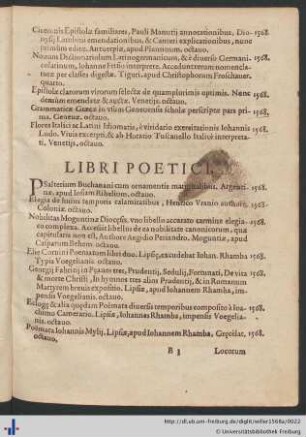 Ciceronis Epistolæ familiares, Pauli Manutij annotationibus, Dio- 1568.
nysij Lambini emendationibus, & Canteri explicationibus, nunc
primùm editæ. Antuerpiæ, apud Plantinum. octauo.
Nouum Dictionariolum Latinogermanicum, & è diuerso Germani- 1568.
colatinum, Iohanne Frisio interprete. Accedunt rerum nomencla-
turæ per classes digestæ. Tiguri, apud Christophorum Froschauer.
quarto.
Epistolæ clarorum virorum selectæ de quamplurimis optimis. Nunc 1568.
demùm emendatæ & auctæ. Venetijs. octauo.
Grammaticæ Græcæ in vsum Geneuensis scholæ perscriptæ pars pri- 1568.
ma. Geneuæ. octauo.
Flores Italici ac Latini Idiomatis, è viridario exercitationis Iohannis 1568.
Lodo. Viuis excerpti, & ab Horatio Tuscanello Italicè interpreta-
ti. Venetijs. octauo.
LIBRI POETICI.
PSalterium Buchanani cum octauo. Argenti- 1568.
næ, apud Iosiam Rihelium. octauo.
Elegia de huius temporis calamitatibus, Henrico authore, 1568.
Coloniæ. octauo.
Nobilitas Moguntinæ Diœcesis, vno libello accurato carmine elegia- 1568.
co complexa. Accessit libellus de ea nobilitate canonicorum, quæ
capitularis non est, Authore Aegidio Periandro. Moguntiæ, apud
Casparum Behem. octauo.
Eliæ Coruini Poëmatum libri duo. Lipsiæ, excudebat Iohan. Rhamba 1568.
Typis Voegelianis. octauo.
Georgij Fabricij in Pæanas tres, Prudentij, Sedulij, Fortunati, De vita 1568.
& morte Christi, In hymnos tres alios Prudentij, & in Romanum
Martyrem breuis expositio. Lipsiæ, apud Iohannem Rhamba, im-
pensis Voegelianis. octauo.
Eclogæ & alia quædam Poëmata diuersis temporibus composita à Ioa- 1568.
chimo Camerario. Lipsiæ, Iohannes Rhamba, impensis Voegelia-
nis. octauo.
Poëmata Iohannis Mylij. Lipsiæ, apud Iohannem Rhamba, Græcolat. 1568.
octauo.
B 3 Locorum
http://dl.ub.uni-freiburg.de/diglit/weller1568a/0022
Universitätsbibliothek Freiburg